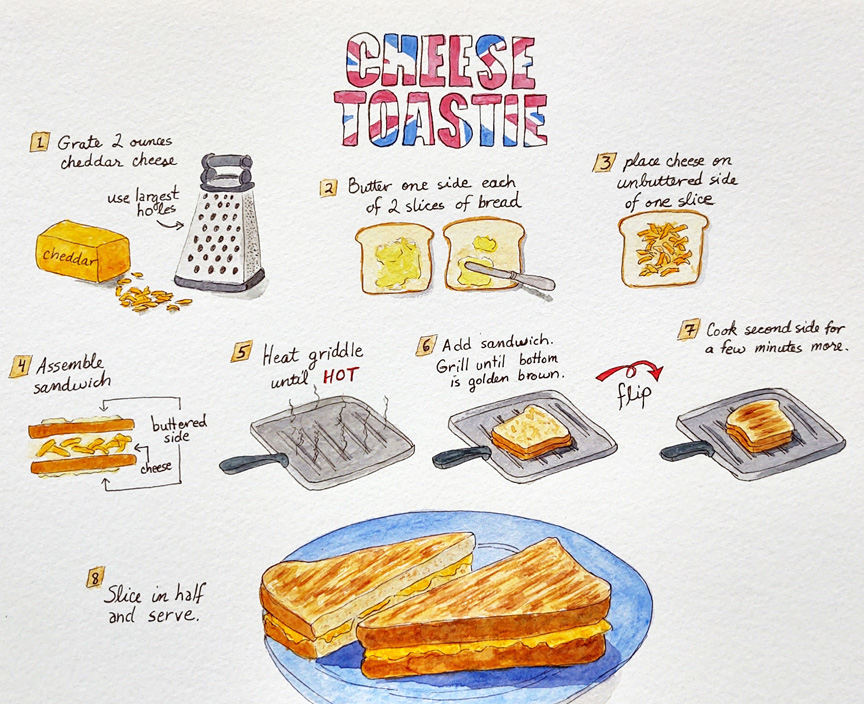 CHEESE
TOASTIE
1 Grate 2 ounces
cheddar cheese
use largest
holes
cheddar
2 Butter one side each
of 2 slices of bread
3 place cheese on
unbuttered side
of one slice
4 Assemble
sandwich
buttered
side
cheese
5 Heat griddle
until HOT
6 Add sandwich.
Grill until bottom
is golden brown.
flip
7 Cook second side for
a few minutes more.
8
Slice in half
and serve.